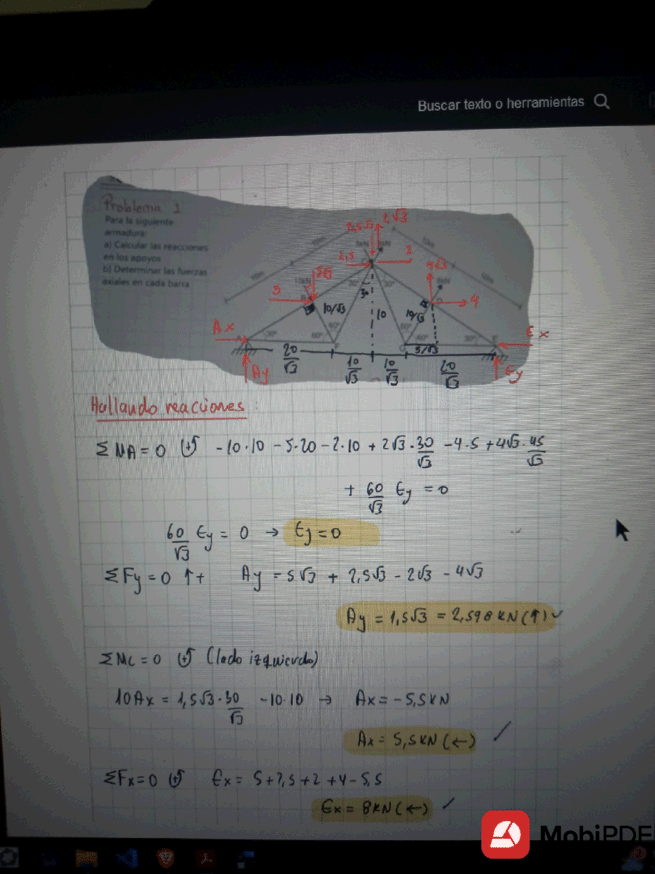 Buscar texto o herramientas
Problema 1
Para la siguiente
armadura:
a) Calcular las reacciones
en los apoyos
b) Determinar las fuerzas
axiales en cada barra
2√3
2,5
5
4√3
4
10/√3
10
30
5/√3
Ax
Ex
Ay
Ey
20/√3
10/√3
10/√3
20/√3
Hallando reacciones:
ΣMA=0 (+) -10·10 -5·20 -2·10 + 2√3·30/√3 -4·5 +4√3·45/√3
+ 60/√3 Ey = 0
60/√3 Ey = 0 → Ey=0
ΣFy=0 ↑+ Ay = 5√3 + 2,5√3 - 2√3 - 4√3
Ay = 1,5√3 = 2,598 KN (↑)
ΣMc=0 (lado izquierdo)
10Ax = 1,5√3·30/√3 -10·10 → Ax=-5,5KN
Ax= 5,5KN (←)
ΣFx=0 Ex= 5+2,5+2+4-5,5
Ex = 8KN (←)
MobiPDF